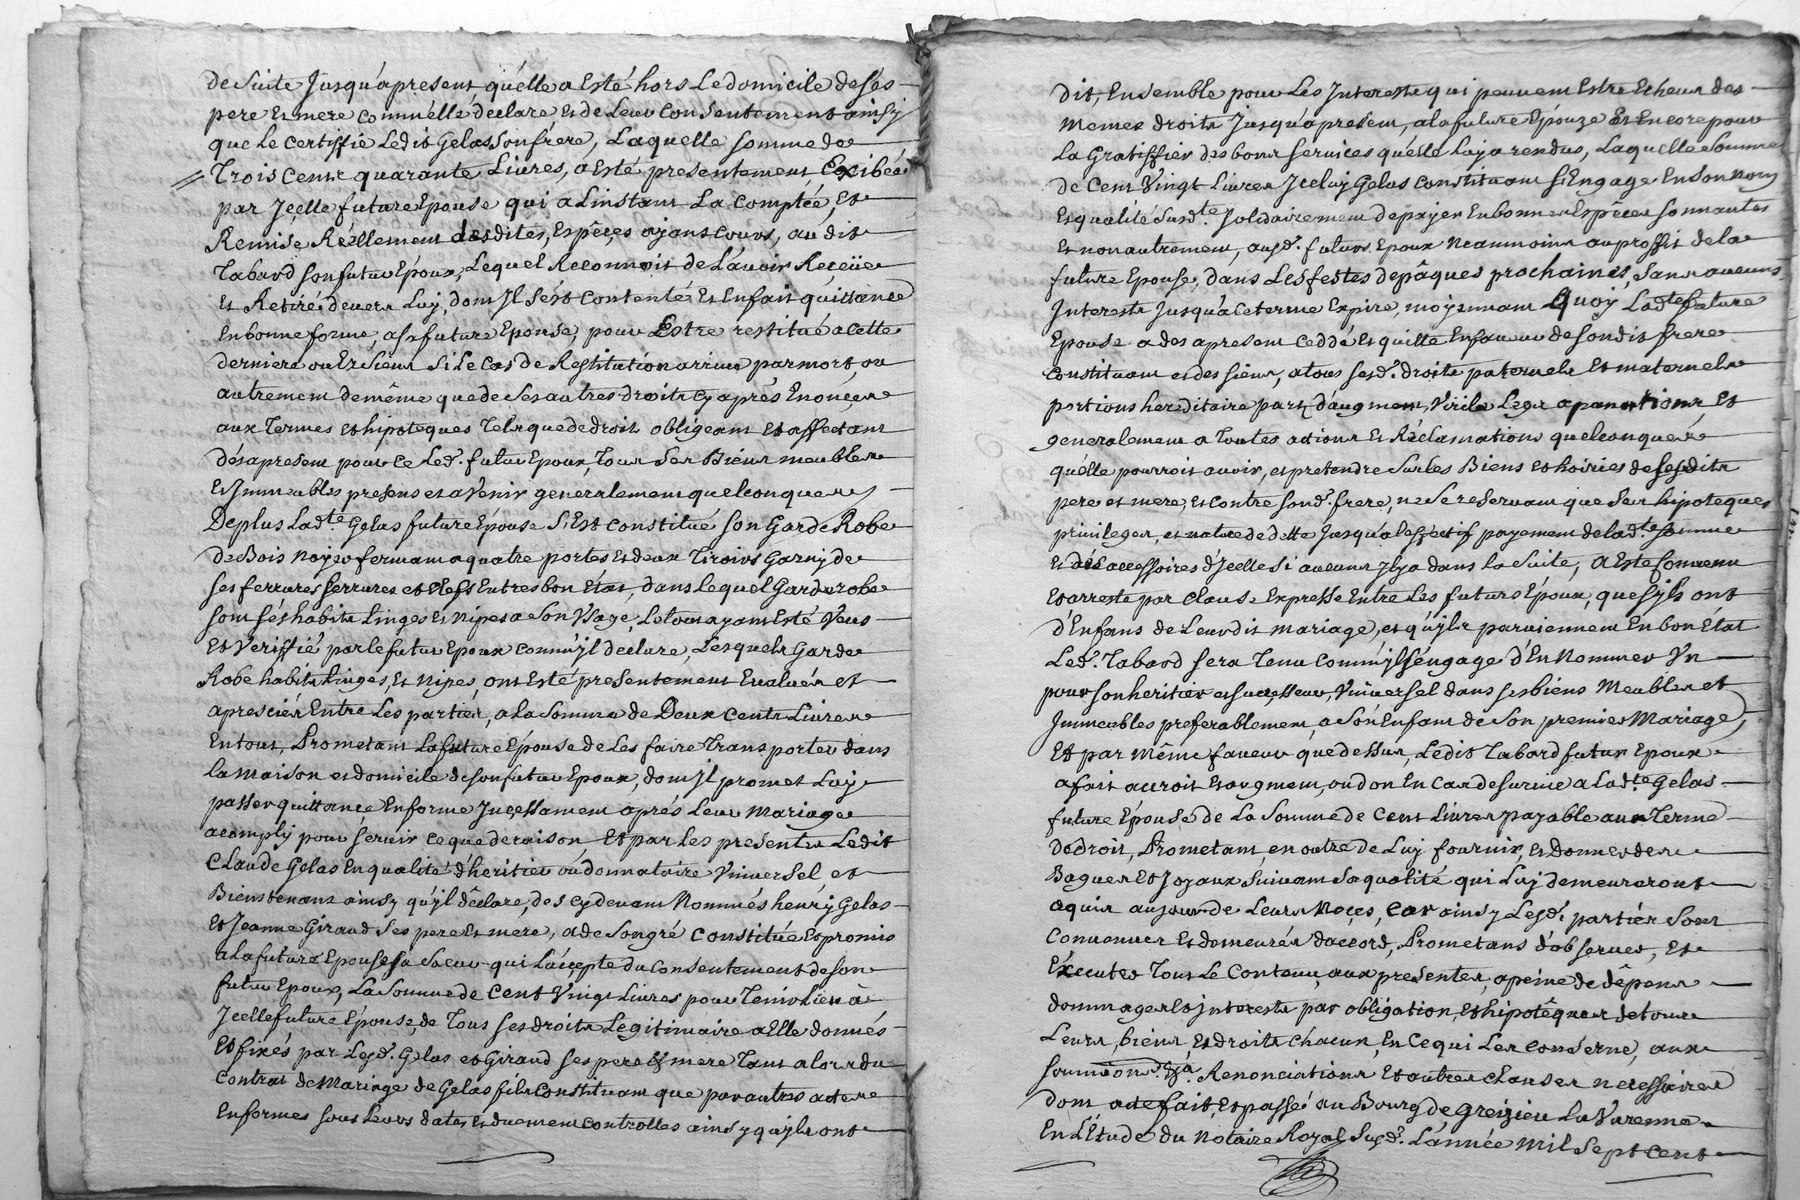 de Suite Jusqu'apresent qu'elle a Esté hors Le domicile de ses
pere Et mere comm'elle declare Et de Leur Consentement ainsy
que Le Certiffie Ledit Gelas son frére, Laquelle somme de
Trois Cents quarante Livres, a Esté presentement Exibée
par Jcelle future Epouse qui a L'instant La Comptée, Et
Remise Réellement desdites Espéçes ajant cours, au dit
Tabard son futur Epoux, Lequel Reconnoit de L'avoir Reçüe
Et Retiré devers Luy, dont Jl s'est Contenté Et Enfait quittance
En bonne forme, a sa future Epouse, pour Estre restitué a cette
derniere ou Es Siens Si Le Cas de Restitution arrive par mort, ou
autrement de même que de Ses autres droits Cy aprés Enonçer
aux Termes Et hipoteques Tels que de droit obligeant Et affectant
dés apresent pour ce Led. futur Epoux, Tous Ses Biens meubles
Et Jmmeubles presens et a Venir generalement quelconques
De plus Lad.te Gelas future Epouse S'Est constitué son Garde Robe
de Bois Noyer fermant a quatre portes et deux Tiroirs Garny de
ses ferrures serrures et Clefs En tres bon Etat, dans Lequel Garderobe
sont sés habits Linges Et Nipes a Son Vsage, Le tout ayant Esté Veus
Et Veriffié par le futur Epoux comm'jl declare, Lesquels Garde
Robe habits Linges, Et Nipes, ont Esté presentement Evalués et
apreciés Entre Les parties, a la Somme de Deux Cents Livres
En tout, Prometant La future Epouse de Les faire Transporter dans
la Maison et domicile de son futur Epoux, dont jl promet Luy
passer quittance En forme Jncessament aprés Leur Mariage
acomply pour servir ce que de raison, Et par Les presentes Ledit
Claude Gelas En qualité d'heritier ou donnatoire Vniversel et
Bienstenant ainsy qu'jl déclare, des cy devant Nommés henry Gelas
Et Jeanne Giraud Ses pere Et mere, a de Son gré Constitué Et promis
a La future Epouse sa Soeur qui L'acçepte du consentement de son
futur Epoux, La Somme de Cent Vingt Livres pour Tenir Lieu à
Jcelle future Epouse, de Tous ses droits Legitimaire a Elle donnés
Et fixés par Lesd. Gelas et Giraud Ses pere & mere Tant a Lors du
Contrat de Mariage de Gelas fils Constituant que par autres actes
En formes sous Leurs dates et duement Controllés ainsy qu'jls ont
dit, Ensemble pour Les Jnterests qui peuvent Estre Echeus des
Memes droits Jusqu'apresent, a la future Epouze Et Encore pour
La Gratiffier des bons services qu'elle Luy a rendus, Laquelle Somme
de Cent Vingt Livres Jceluy Gelas Constituant s'Engage En son nom
Et qualité Susd.te Solidairement de payer En bonnes Espéces sonnantes
Et non autrement, aud. futurs Epoux Neanmoins au proffit de la
future Epouse, dans Les festes de pâques prochaines, Sans aucuns
Jnterests Jusqu'à Ce terme Expiré, moyennant Quoy Lad.te future
Epouse a des apresent Ceddé Et quitté En faveur de son dit frere
Constituant et des siens, a tous sesd. droits paternels Et maternels
portions hereditaire part d'augment, Virile Legs aparitions, Et
generalement a Toutes actions Et Réclamations quelconques
qu'elle pourroit avoir, et pretendre Sur les Biens et hoiries de sesdits
pere et mere, Et Contre sond. frere, ne Se reservant que Ses hipoteques
privileges, et nature de dette Jusqu'à L'effectif payement de lad.te Somme
Et des accessoires d'Jcelle Si aucuns Jl y a dans la Suite, a Esté Convenu
Et arresté par Clause Expresse Entre Les futurs Epoux, que S'jls ont
d'Enfans de Leur dit Mariage, et qu'jls parviennent En bon Etat
Led. Tabard sera Tenu comm'jl S'Engage d'En Nommer Vn
pour son heritier et Successeur Vniversel dans ses biens Meubles et
Jmmeubles preferablement a Son Enfant de Son premier Mariage,
Et par Même faveur que dessus, Ledit Tabard futur Epoux
a fait accroit Et augment, ou don En Cas de survie a Lad.te Gelas
future Epouse de La Somme de Cent Livres payable aux Terme
de droit, Prometant, en outre de Luy fournir, et donner des
Bagues Et Joyaux suivant Sa qualité qui Luy demeureront
aquis au jour de Leurs Noçes, Car ainsy Lesd. parties sont
Convenues Et demeurés d'accord, Prometans d'observer, Et
Exécuter Tout Le Contenu, aux presentes, a peine de dépens
dommages Et Jnterests par obligation, Et hipotêques de tous
Leurs biens, Et droits chacun, En Ce qui Les Conserne, aux
soumôns, Renonciations Et autres clauses necessaires
dont acte fait, Et passé au Bourg de Greizieu La Varenne
En L'Etude du Notaire Royal Susd. L'année Mil Sept Cent